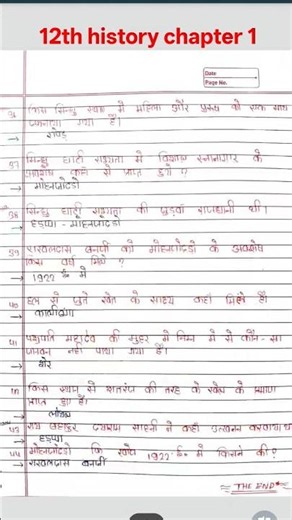 12th history chapter 1
Date
Page No.
किस सिन्धु स्थल में महिला और पुरुष को एक साथ
दफनाया गया है।
→ लोथल
37 सिन्धु घाटी सभ्यता में विशाल स्नानागार के
अवशेष कहाँ से प्राप्त हुये ?
→ मोहनजोदड़ो
38 सिन्धु घाटी सभ्यता की जुड़वां राजधानी थी।
→ हड़प्पा - मोहनजोदड़ो
39 राखलदास बनर्जी को मोहनजोदड़ो के अवशेष
किस वर्ष मिले ?
→ 1922 ई० में
40 हल से जुते खेत के साक्ष्य कहाँ मिले है।
→ कालीबंगा
41 पशुपति महादेव की मुहर में निम्न में से कौन-सा
जानवर नहीं पाया गया है।
→ शेर
किस स्थान से शतरंज की तरह के खेल के प्रमाण
प्राप्त हुए है।
→ लोथल
43 राय बहादुर दयाराम साहनी ने कहाँ उत्खनन करवाया था
→ हड़प्पा
44 मोहनजोदड़ो कि खोज 1922 ई० में किसने की ?
→ राखलदास बनर्जी
THE END